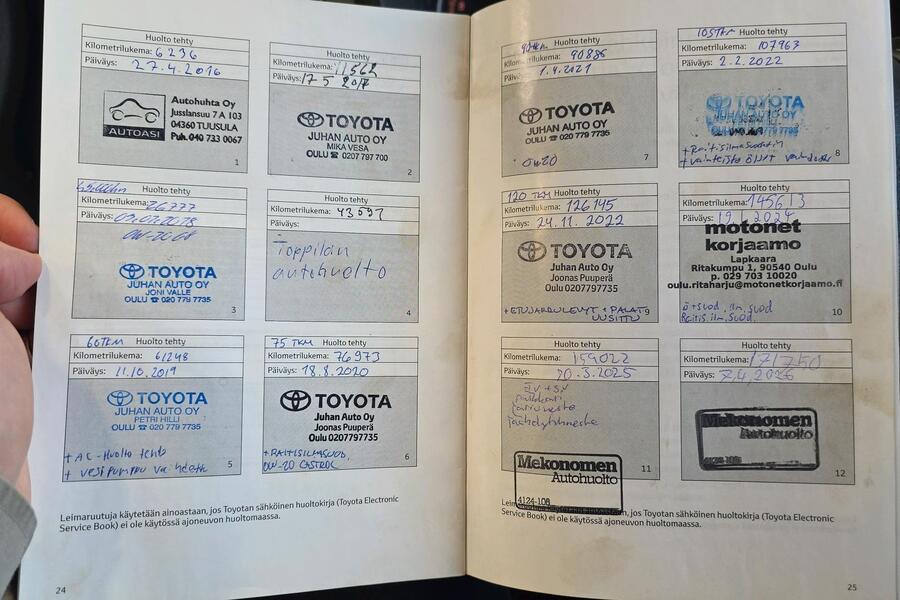 Huolto tehty
Kilometrilukema: 6236
Päiväys: 27.4.2016
Autohuhta Oy
Jusslansuu 7 A 103
04360 TUUSULA
Puh. 040 733 0067
AUTOASI
1
Huolto tehty
Kilometrilukema: 11562
Päiväys: 17 5 2017
TOYOTA
JUHAN AUTO OY
MIKA VESA
OULU ☎ 0207 797 700
2
Huolto tehty
Kilometrilukema: 26777
Päiväys: 09.02.2018
0W-20
TOYOTA
JUHAN AUTO OY
JONI VALLE
OULU ☎ 020 779 7735
3
Huolto tehty
Kilometrilukema: 43597
Päiväys:
Toppilan
autohuolto
4
60 TKM Huolto tehty
Kilometrilukema: 61248
Päiväys: 11.10.2019
TOYOTA
JUHAN AUTO OY
PETRI HILLI
OULU ☎ 020 779 7735
+ AC-Huolto tehty
+ vesipumppu vaihdettu
5
75 TKM Huolto tehty
Kilometrilukema: 76973
Päiväys: 18.8.2020
TOYOTA
Juhan Auto Oy
Joonas Puuperä
Oulu 0207797735
+RAITISILMASUOD.
0W-20 CASTROL
6
Leimaruutuja käytetään ainoastaan, jos Toyotan sähköinen huoltokirja (Toyota Electronic
Service Book) ei ole käytössä ajoneuvon huoltomaassa.
24
Huolto tehty
90tkm
Kilometrilukema: 90886
Päiväys: 1.4.2021
TOYOTA
JUHAN AUTO OY
OULU ☎ 020 779 7735
0W20
7
105TKM Huolto tehty
Kilometrilukema: 107963
Päiväys: 2.2.2022
TOYOTA
JUHAN AUTO OY
+Raitisilmasuodatin
+vaihteisto öljyt vaihdettu
8
120 TKM Huolto tehty
Kilometrilukema: 126145
Päiväys: 24.11.2022
TOYOTA
Juhan Auto Oy
Joonas Puuperä
Oulu 0207797735
+ETUJARRULEVYT + PALAT
UUSITTU
9
Huolto tehty
Kilometrilukema: 145613
Päiväys: 19.1.2024
motonet
korjaamo
Lapkaara
Ritakumpu 1, 90540 Oulu
p. 029 703 10020
oulu.ritaharju@motonetkorjaamo.fi
ö+suod, ilm.suod
Raitis.ilm.suod.
10
Huolto tehty
Kilometrilukema: 159022
Päiväys: 20.3.2025
jarruneste
jäähdytinneste
Mekonomen
Autohuolto
4124-108
11
Huolto tehty
Kilometrilukema: 171750
Päiväys: 7.4.2026
Mekonomen
Autohuolto
12
Leimaruutuja käytetään ainoastaan, jos Toyotan sähköinen huoltokirja (Toyota Electronic
Service Book) ei ole käytössä ajoneuvon huoltomaassa.
25